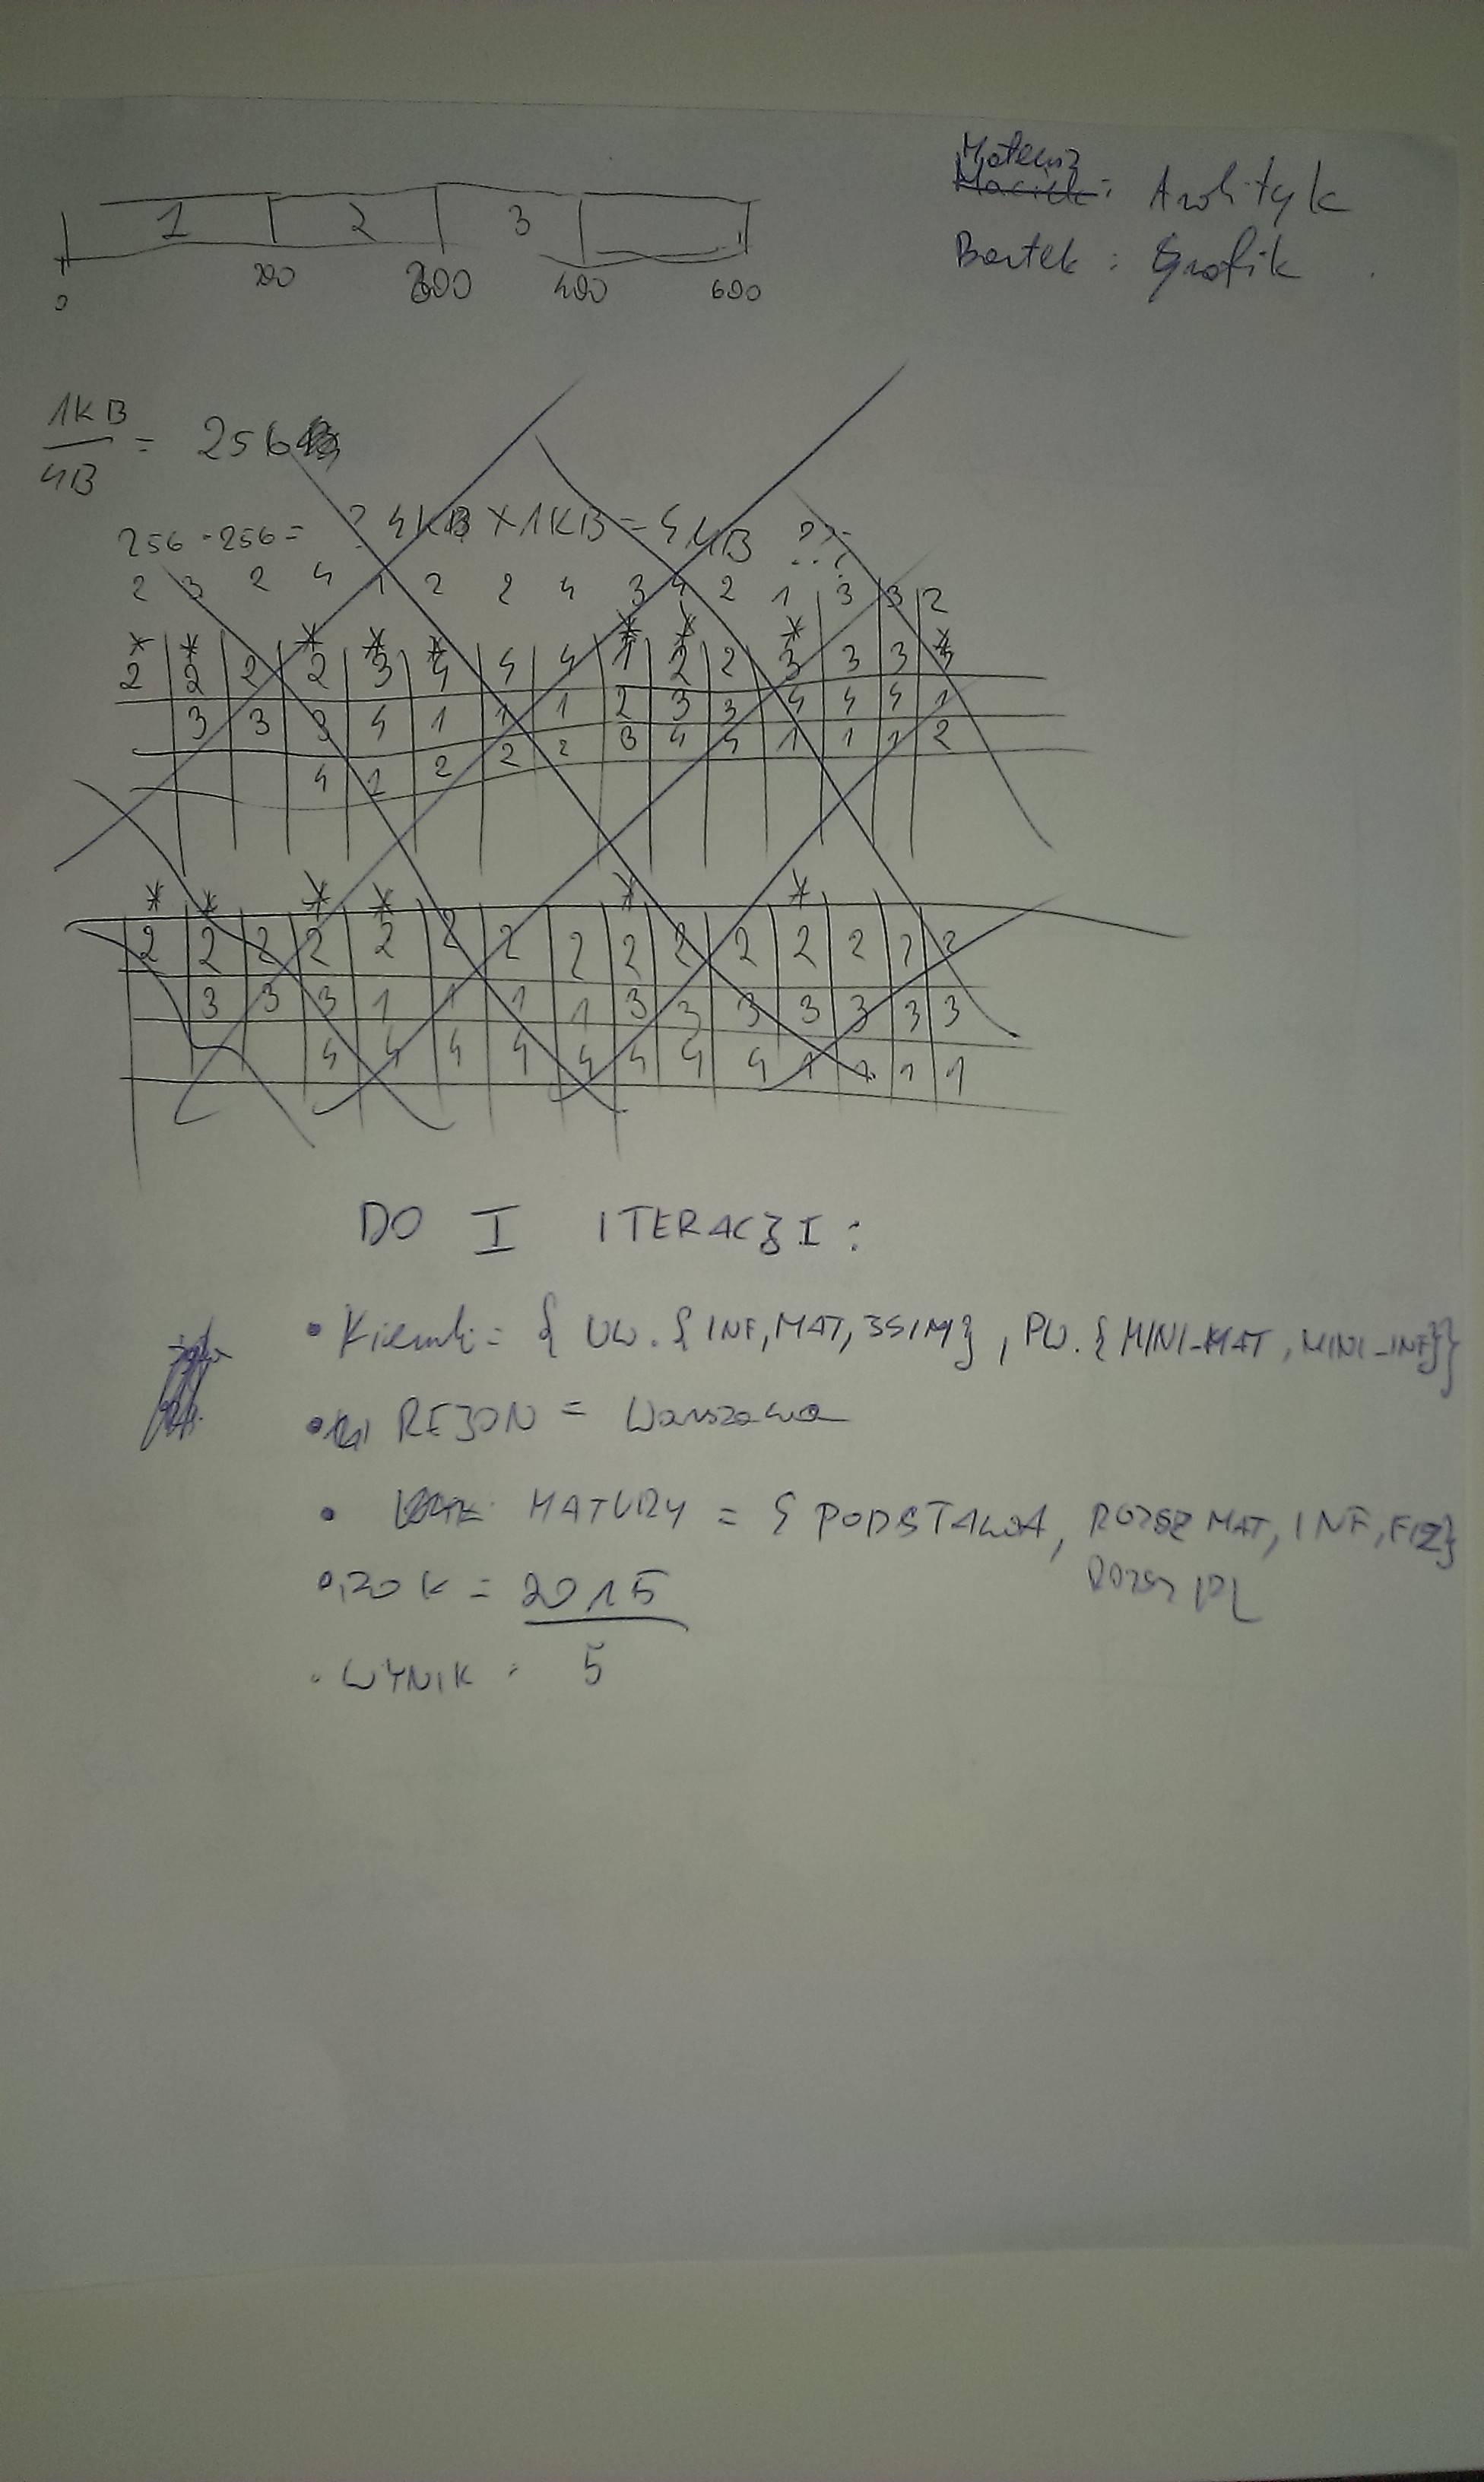 1 2 3
0 200 300 400 600
Mateusz
Maciek: Analityk
Bartek: Grafik
1KB
4B
= 256
256 · 256 = ? 4KB × 1KB = 4MB ???
2 3 2 4 1 2 2 4 3 4 2 1 3 3 2
* * * * * * * * *
2 2 2 2 3 4 4 4 1 2 2 3 3 3 4
3 3 3 4 1 1 1 2 3 3 4 4 4 1
4 1 2 2 2 3 4 4 1 1 1 2
* * * * * *
2 2 2 2 2 2 2 2 2 2 2 2 2 2 2
3 3 3 1 1 1 1 3 3 3 3 3 3 3
4 4 4 4 4 4 4 4 1 1 1 1
DO I ITERACJI:
• Kierunki = { UW. { INF, MAT, JSIM } , PW. { MINI-MAT, MINI-INF}}
• REJON = Warszawa
• MATURY = { PODSTAWA, ROZSZ MAT, INF, FIZ}
ROZSZ PL
• ROK = 2015
• WYNIK = 5